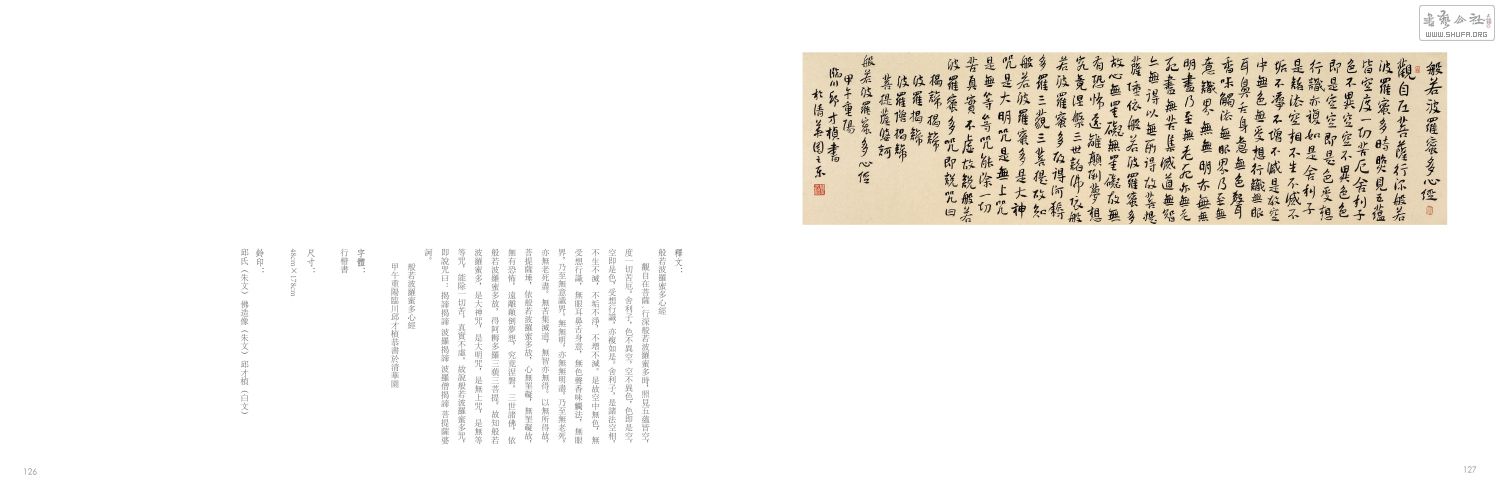 書藝公社
WWW.SHUFA.ORG
般若波羅蜜多心經
觀自在菩薩行深般若
波羅蜜多時照見五蘊
皆空度一切苦厄舍利子
色不異空空不異色色
即是空空即是色受想
行識亦復如是舍利子
是諸法空相不生不滅不
垢不淨不增不減是故空
中無色無受想行識無眼
耳鼻舌身意無色聲
香味觸法無眼界乃至無
意識界無無明亦無無
明盡乃至無老死亦無老
死盡無苦集滅道無智
亦無得以無所得故菩提
薩埵依般若波羅蜜多
故心無罣礙無罣礙故無
有恐怖遠離顛倒夢想
究竟涅槃三世諸佛依般
若波羅蜜多故得阿耨
多羅三藐三菩提故知
般若波羅蜜多是大神
咒是大明咒是無上咒
是無等等咒能除一切
苦真實不虛故說般若
波羅蜜多咒即說咒曰
揭諦揭諦
波羅揭諦
波羅僧揭諦
菩提薩婆訶
般若波羅蜜多心經
甲午重陽
臨川邱才楨書
於清華園之東
釋文：
般若波羅蜜多心經
觀自在菩薩，行深般若波羅蜜多時，照見五蘊皆空，
度一切苦厄。舍利子，色不異空，空不異色，色即是空，
空即是色，受想行識，亦複如是。舍利子，是諸法空相，
不生不滅，不垢不淨，不增不減。是故空中無色，無
受想行識，無眼耳鼻舌身意，無色聲香味觸法，無眼
界，乃至無意識界，無無明，亦無無明盡，乃至無老死，
亦無老死盡。無苦集滅道，無智亦無得。以無所得故，
菩提薩埵，依般若波羅蜜多故，心無罣礙，無罣礙故，
無有恐怖，遠離顛倒夢想，究竟涅槃。三世諸佛，依
般若波羅蜜多故，得阿耨多羅三藐三菩提。故知般若
波羅蜜多，是大神咒，是大明咒，是無上咒，是無等
等咒，能除一切苦，真實不虛。故說般若波羅蜜多咒，
即說咒曰：揭諦揭諦 波羅揭諦 波羅僧揭諦 菩提薩婆
訶。
般若波羅蜜多心經
甲午重陽臨川邱才楨恭書於清華園
字體：
行楷書
尺寸：
48cm×178cm
鈐印：
邱氏（朱文） 佛造像（朱文） 邱才楨（白文）
126
127